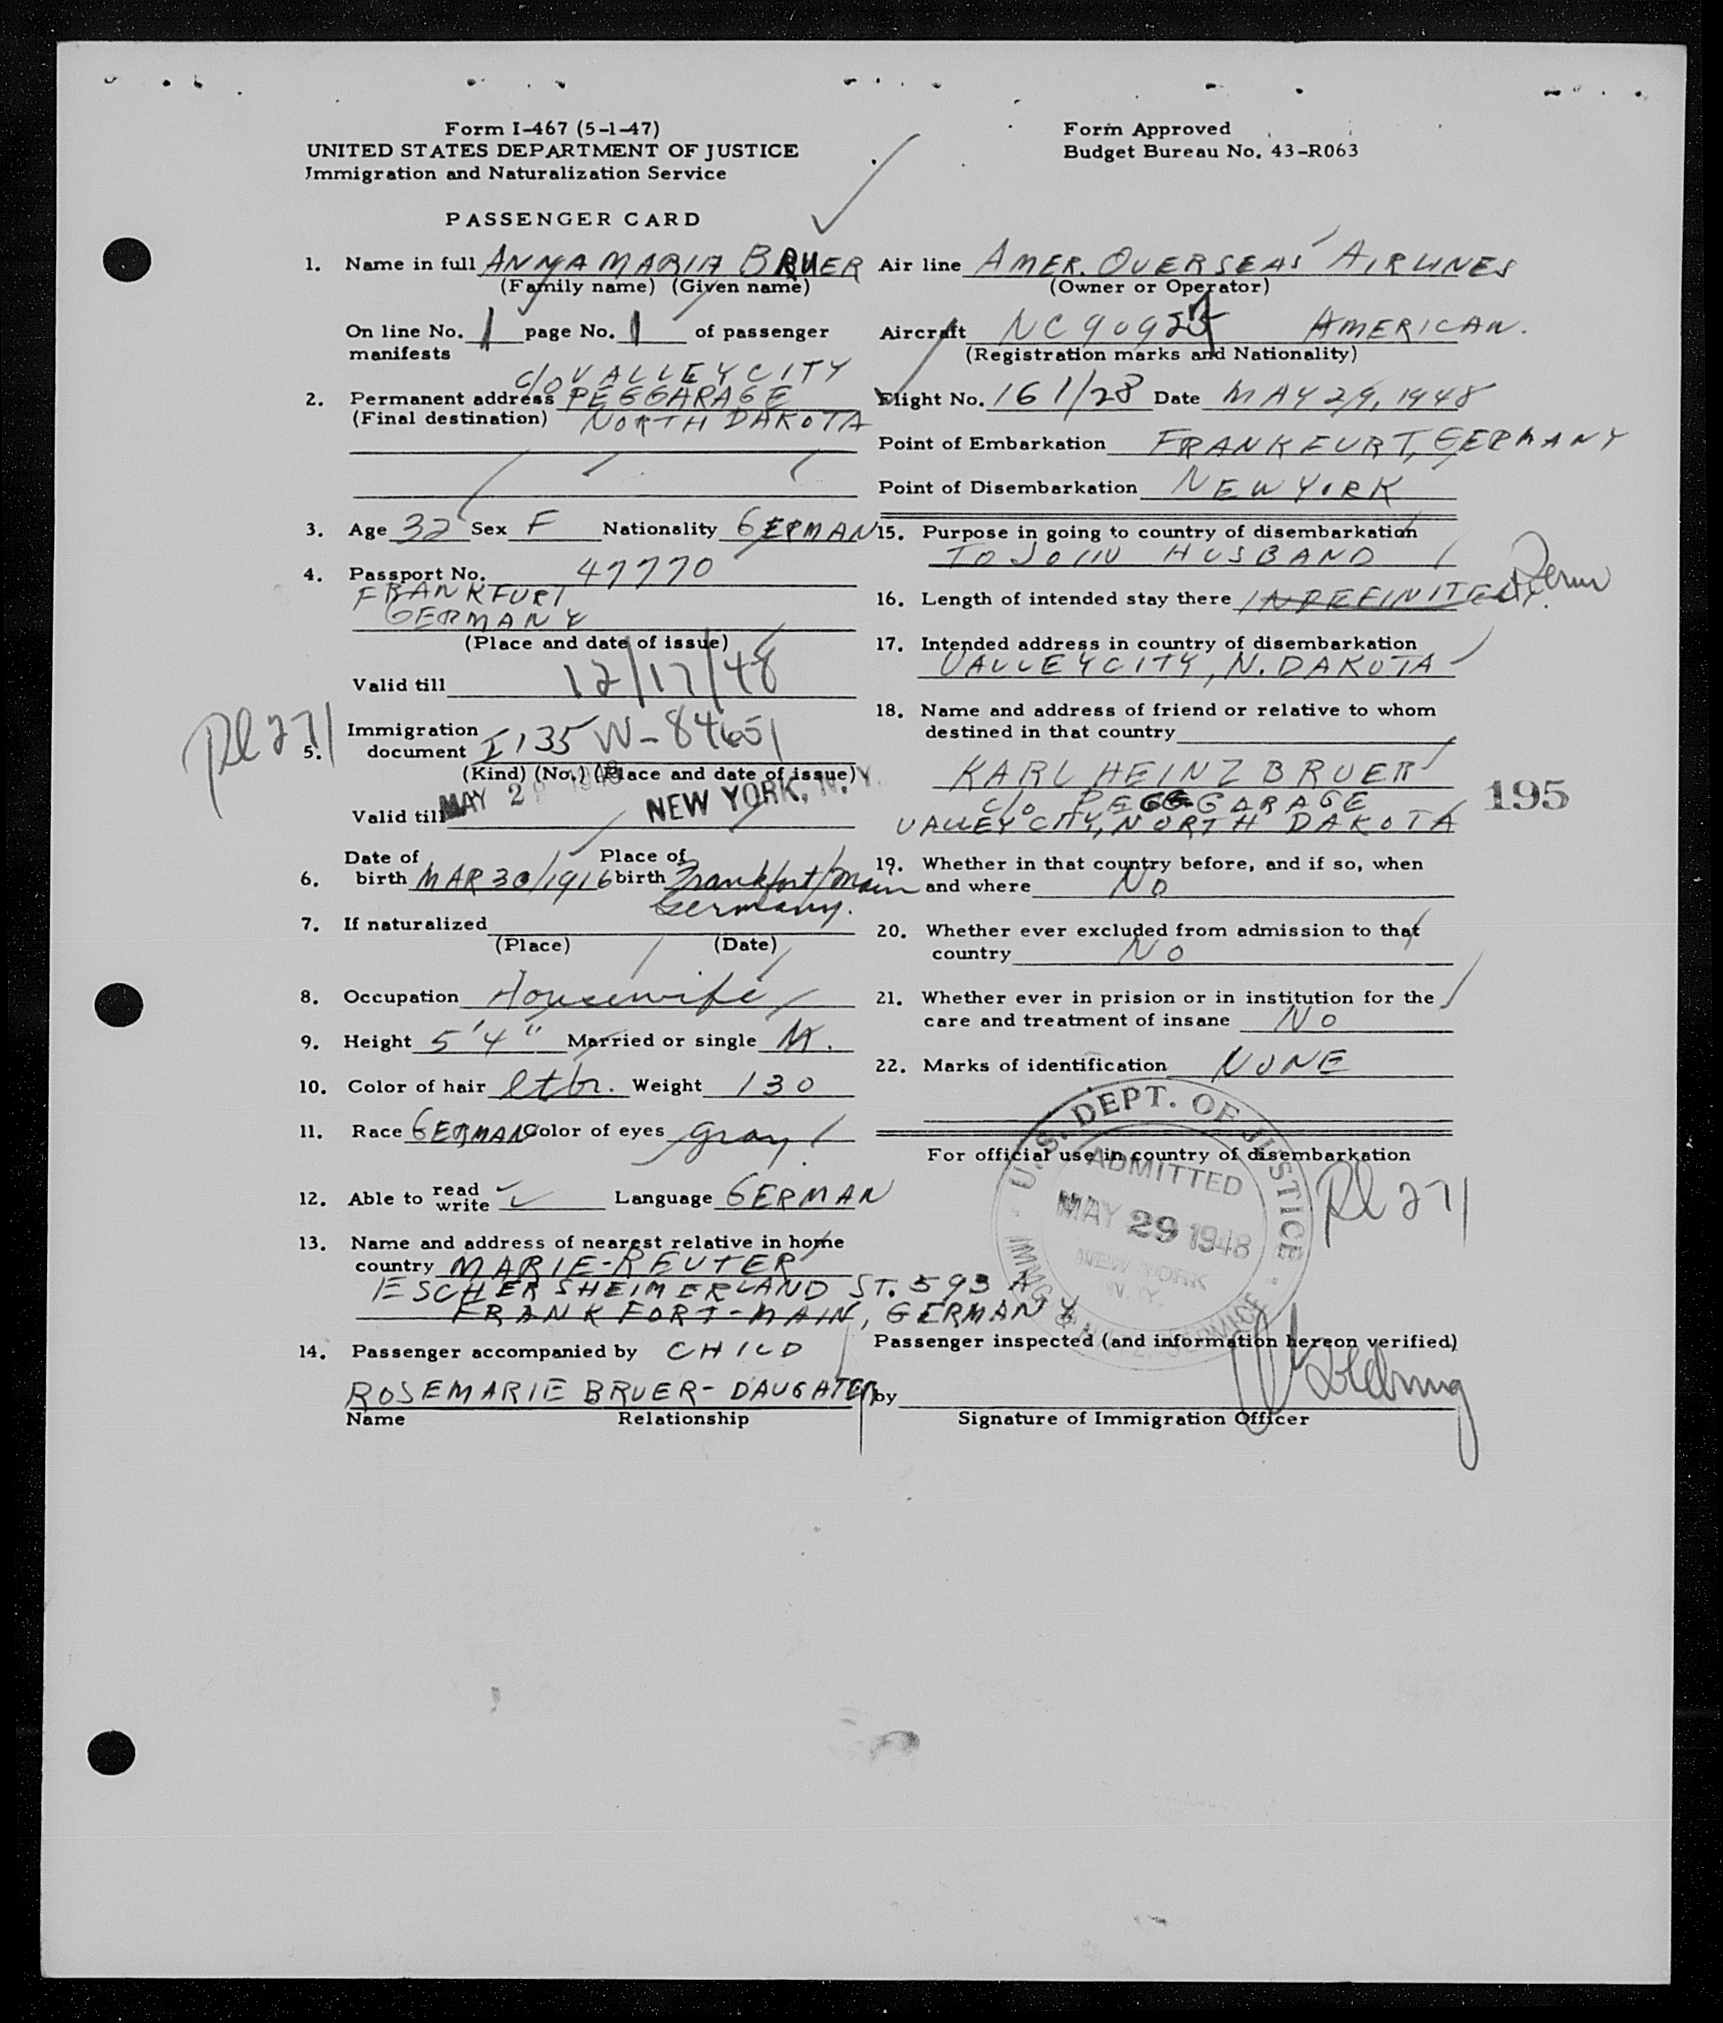 Form I-467 (5-1-47)
UNITED STATES DEPARTMENT OF JUSTICE
Immigration and Naturalization Service
PASSENGER CARD
Form Approved
Budget Bureau No. 43-R063
1. Name in full ANNA MARIA BRUER
(Family name) (Given name)
On line No. 1 page No. 1 of passenger
manifests
c/o VALLEY CITY
2. Permanent address PEGGARAGE
(Final destination) NORTH DAKOTA
3. Age 32 Sex F Nationality GERMAN
4. Passport No. 47770
FRANKFURT
GERMANY
(Place and date of issue)
Valid till 12/17/48
Pl 271
Immigration
5. document I 135 W-84651
(Kind) (No.) (Place and date of issue)
MAY 2 1948 NEW YORK, N.Y.
Valid till
Date of Place of
6. birth MAR 30/1916 birth Frankfort/Main
Germany.
7. If naturalized
(Place) (Date)
8. Occupation Housewife
9. Height 5'4" Married or single M.
10. Color of hair ltbr. Weight 130
11. Race GERMAN Color of eyes gray
12. Able to read write Language GERMAN
13. Name and address of nearest relative in home
country MARIE-REUTER
ESCHERSHEIMERLAND ST. 593 A
FRANKFORT-MAIN, GERMANY
14. Passenger accompanied by CHILD
ROSEMARIE BRUER- DAUGHTER
Name Relationship
Air line AMER. OVERSEAS AIRLINES
(Owner or Operator)
Aircraft NC9092 AMERICAN.
(Registration marks and Nationality)
Flight No. 161/28 Date MAY 29, 1948
Point of Embarkation FRANKFURT, GERMANY
Point of Disembarkation NEW YORK
15. Purpose in going to country of disembarkation
TO JOIN HUSBAND
16. Length of intended stay there INDEFINITE Perm
17. Intended address in country of disembarkation
VALLEY CITY, N. DAKOTA
18. Name and address of friend or relative to whom
destined in that country
KARL HEINZ BRUER
c/o PEGGGARAGE
VALLEY CITY, NORTH DAKOTA
195
19. Whether in that country before, and if so, when
and where NO
20. Whether ever excluded from admission to that
country NO
21. Whether ever in prision or in institution for the
care and treatment of insane NO
22. Marks of identification NONE
For official use in country of disembarkation
U.S. DEPT. OF JUSTICE
ADMITTED
MAY 29 1948
NEW YORK
N.Y.
IMMIG
SERVICE
Pl 271
Passenger inspected (and information hereon verified)
by
Signature of Immigration Officer